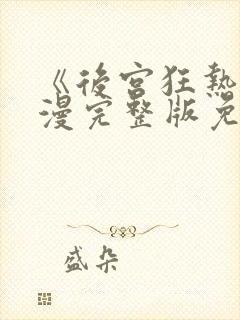 《後宮狂熱
漫完整版免
盛朵